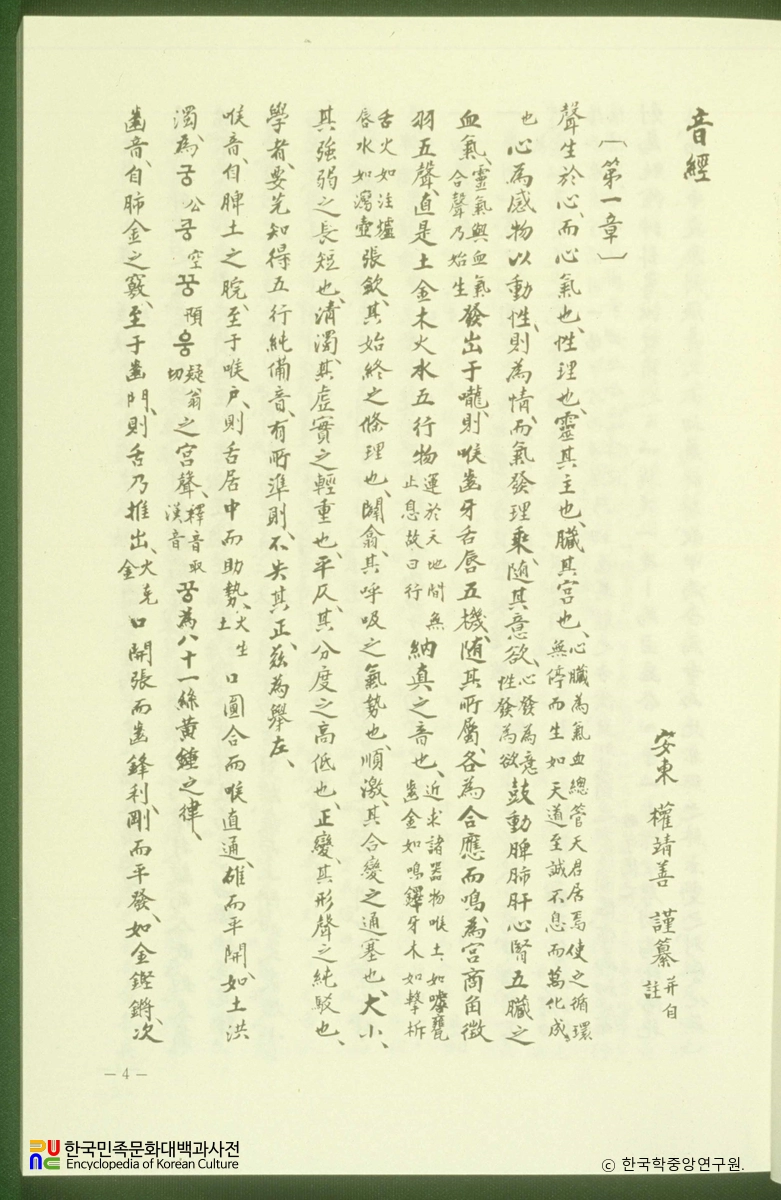 音經
安東 權靖善 謹纂 并自註
〔第一章〕
聲生於心、而心氣也、性理也、靈其主也、臟其宮也、心臟為氣血總管天君居焉使之循環無停而生如天道至誠不息而萬化成。
也心為感物以動性、則為情、而氣發理乘、隨其意欲、心發為意性發為欲 鼓動脾肺肝心腎五臟之
血氣、靈氣與血氣合聲乃始生 發出于嚨、則喉齒牙舌唇五機、隨其所屬、各為合應而鳴、為宮商角徵
羽五聲、直是土金木火水五行物 運於天地間無止息故曰行 納真之音也、近求諸器物喉土如嘑甕齒金如鳴鐸牙木如擊柝
舌火如注爐唇水如瀉壺 張歛、其始終之條理也、闢翕、其呼吸之氣勢也、順激、其合變之通塞也、大小、
其強弱之長短也、清濁、其虛實之輕重也、平仄、其分度之高低也、正變、其形聲之純駁也、
學者、要先知得五行純備音、有所準則、不失其正、茲為舉左、
喉音、自脾土之脘、至于喉戶、則舌居中而助勢、火生土 口圓合而喉直通、雄而平開、如土洪
濁、為궁 公 쿵 空 꿍 頄 웅 疑翁切 之宮聲、釋音取漢音 꿍為八十一絲黃鍾之律、
齒音、自肺金之竅、至于齒門、則舌乃推出、火克金 口開張而齒鋒利、剛而平發、如金鏗鏘、次、
— 4 —
한국민족문화대백과사전
Encyclopedia of Korean Culture
ⓒ 한국학중앙연구원.